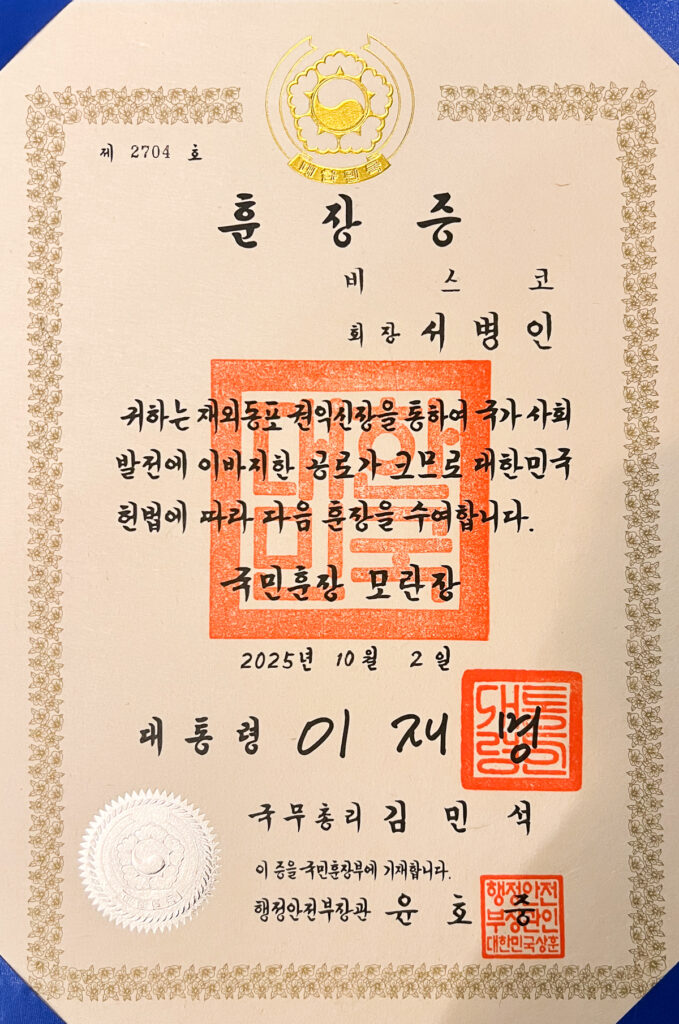 대한민국
제 2704 호
훈장증
비스코
회장 서병인
귀하는 재외동포 권익신장을 통하여 국가 사회
발전에 이바지한 공로가 크므로 대한민국
헌법에 따라 다음 훈장을 수여합니다.
대한민국
국민훈장 모란장
2025년 10월 2일
대통령 이재명
대통령인
국무총리 김민석
이 증을 국민훈장부에 기재합니다.
행정안전부장관 윤호중
행정안전
부장관인
대한민국상훈